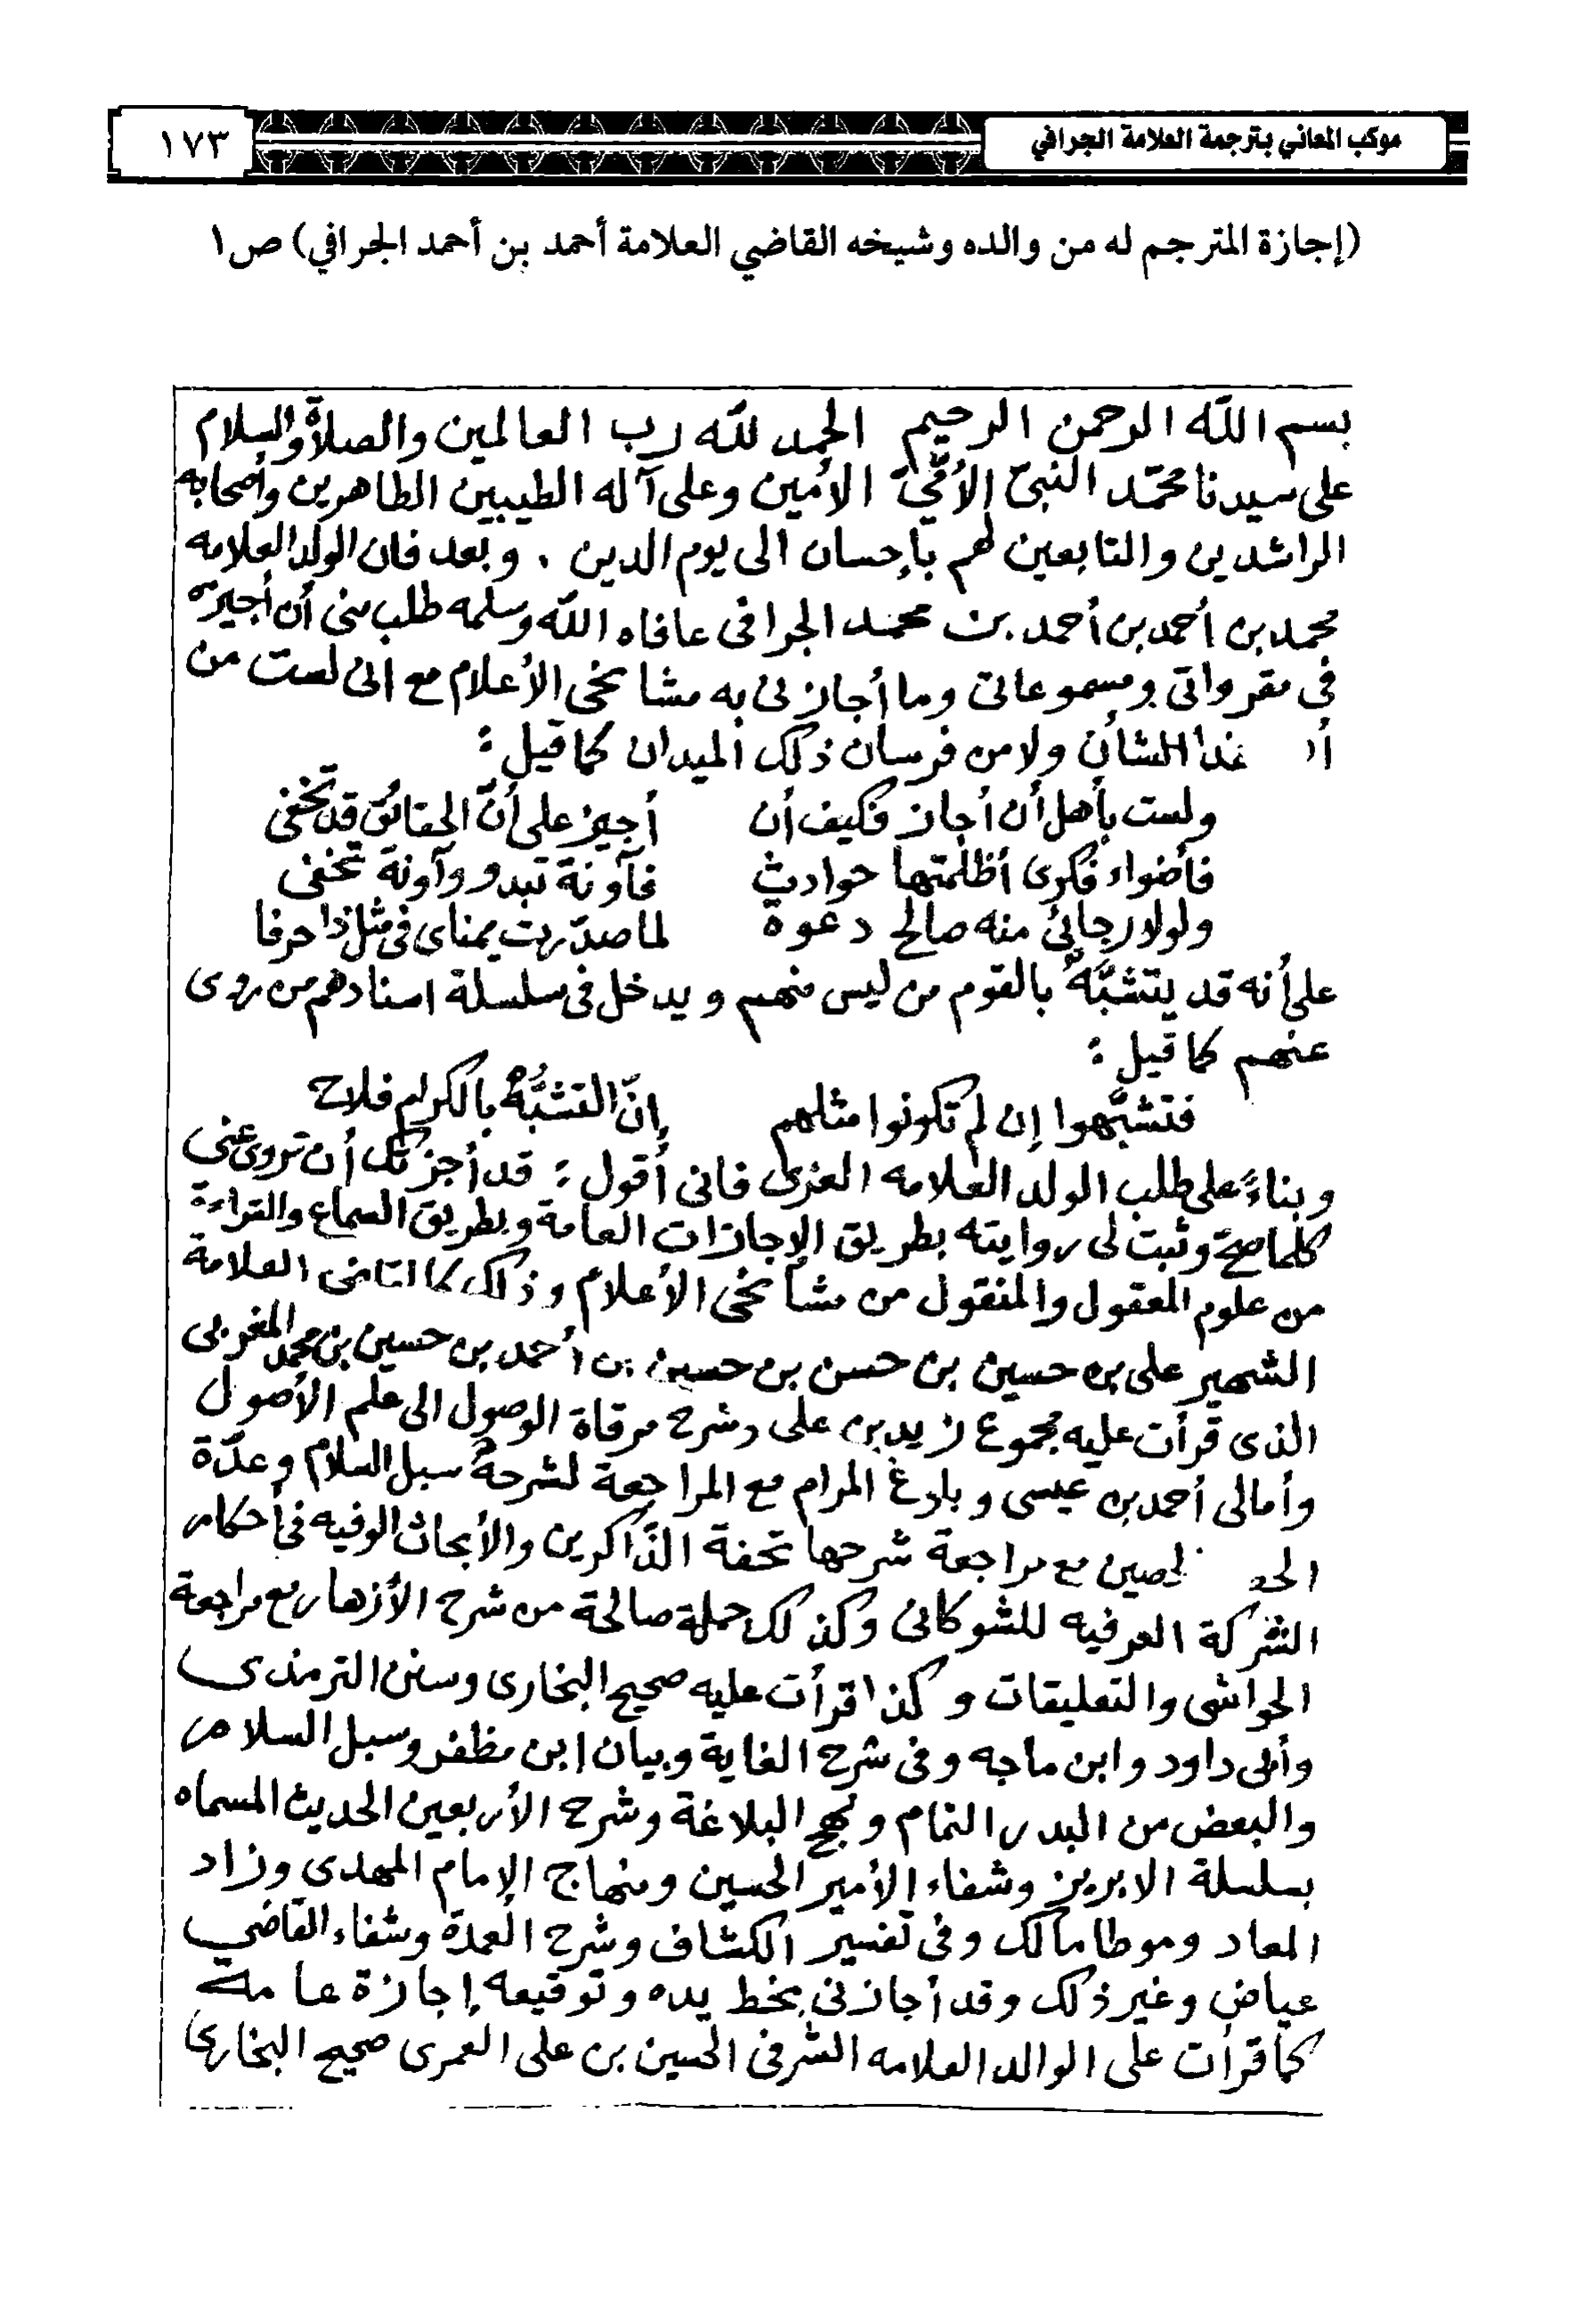 موكب المعاني بترجمة العلامة الجرافي
١٧٣
(إجازة المترجم له من والده وشيخه القاضي العلامة أحمد بن أحمد الجرافي) ص١
بسم الله الرحمن الرحيم الحمد لله رب العالمين والصلاة والسلام
على سيدنا محمّد النبيّ الأُمّيّ الأمين وعلى آله الطيبين الطاهرين وأصحابه
الراشدين والتابعين لهم بإحسان الى يوم الدين . وبعد فان الولد العلامه
محمد بن أحمد بن أحمد بن محمد الجرافى عافاه الله وسلمه طلب منى أن أجيزه
فى مقروآتى ومسموعاتى وما أجازنى به مشائخى الأعلام مع انى لست من
هذا الشأن ولا من فرسان ذلك الميدان كما قيل :
ولست بأهل أن أجاز فكيف أن أجيز على أنّ الحقائق قد تخفى
فأضواء فكرى أظلمتها حوادث فآونة تبدو وآونة تخفى
ولولا رجائى منه صالح دعوة لما صدّرت يمناى فى مثل ذا حرفا
على أنه قد يتشبَّهُ بالقوم من ليس منهم ويدخل فى سلسلة اسنادهم من روى
عنهم كما قيل :
فتشبَّهوا إن لم تكونوا مثلهم إنّ التشبُّهَ بالكرام فلاح
وبناءً على طلب الولد العلامه العزى فانى أقول : قد أجزتك أن تروى عنى
كلما صحّ وثبت لى روايته بطريق الإجازات العامة وبطريق السماع والقراءة
من علوم المعقول والمنقول من مشائخى الأعلام وذلك كالقاضى العلامة
الشهير على بن حسين بن حسن بن حسين بن أحمد بن حسين بن محمد المغربى
الذى قرأت عليه مجموع زيد بن على وشرح مرقاة الوصول الى علم الأصول
وأمالى أحمد بن عيسى وبلوغ المرام مع المراجعة لشرحه سبل السلام وعدّة
الحصين مع مراجعة شرحها تحفة الذّاكرين والأبحاث الوفيه فى أحكام
الشركة العرفيه للشوكانى وكذلك جملة صالحة من شرح الأزهار مع مراجعة
الحواشى والتعليقات وكذا قرأت عليه صحيح البخارى وسنن الترمذى
وأبى داود وابن ماجه وفى شرح الغاية وبيان ابن مظفر وسبل السلام
والبعض من البدر التمام ونهج البلاغة وشرح الأربعين الحديث المسماه
بسلسلة الابريز وشفاء الأمير الحسين ومنهاج الإمام المهدى وزاد
المعاد وموطا مالك وفى تفسير الكشاف وشرح العمدة وشفاء القاضي
عياض وغير ذلك وقد أجازنى بخط يده وتوقيعه إجازة عامة
كما قرأت على الوالد العلامه الشرفى الحسين بن على العمرى صحيح البخارى